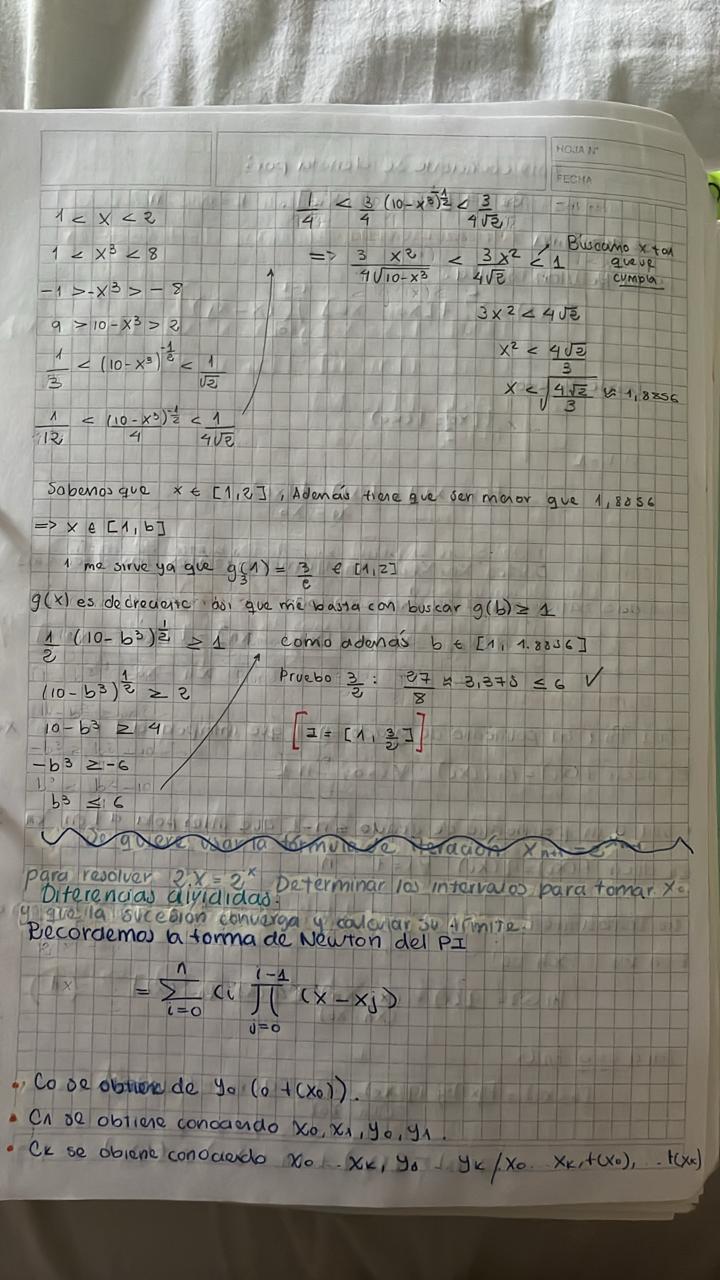 HOJA N°
FECHA
1 < x < 2
1 < x³ < 8
-1 > -x³ > -8
9 > 10-x³ > 2
1/3 < (10-x³)^(-1/2) < 1/√2
1/12 < (10-x³)^(-1/2)/4 < 1/4√2
1/4 < 3/4 (10-x³)^(-1/2) < 3/4√2
=> 3/4 x²/√10-x³ < 3x²/4√2 < 1
Buscamo x tal
que se
cumpla
3x² < 4√2
x² < 4√2/3
x < √(4√2/3) ≈ 1,8856
Sabemos que x ∈ [1,2], Además tiene que ser menor que 1,8856
=> x ∈ [1, b]
1 me sirve ya que g₃(1) = 3/2 ∈ [1,2]
g(x) es decreciente así que me basta con buscar g(b) ≥ 1
1/2 (10-b³)^(1/2) ≥ 1 como además b ∈ [1, 1.8856]
(10-b³)^(1/2) ≥ 2
10-b³ ≥ 4
-b³ ≥ -6
b³ ≤ 6
Pruebo 3/2 : 27/8 ≈ 3,375 ≤ 6 ✓
[I = [1, 3/2]]
Se quiere usar la fórmula de iteración xₙ₊₁ =
para resolver 2x = 2ˣ. Determinar los intervalos para tomar x₀
Diferencias divididas:
y que la sucesión converga y calcular su límite.
Recordemos la forma de Newton del PI
= Σ_{i=0}^{n} ci ∏_{j=0}^{i-1} (x-xj)
• C0 se obtiene de y0 (o f(x0)).
• C1 se obtiene conociendo x0, x1, y0, y1.
• Ck se obiene conociendo x0 .. xk, y0 .. yk / x0 .. xk, f(x0), .. f(xk)